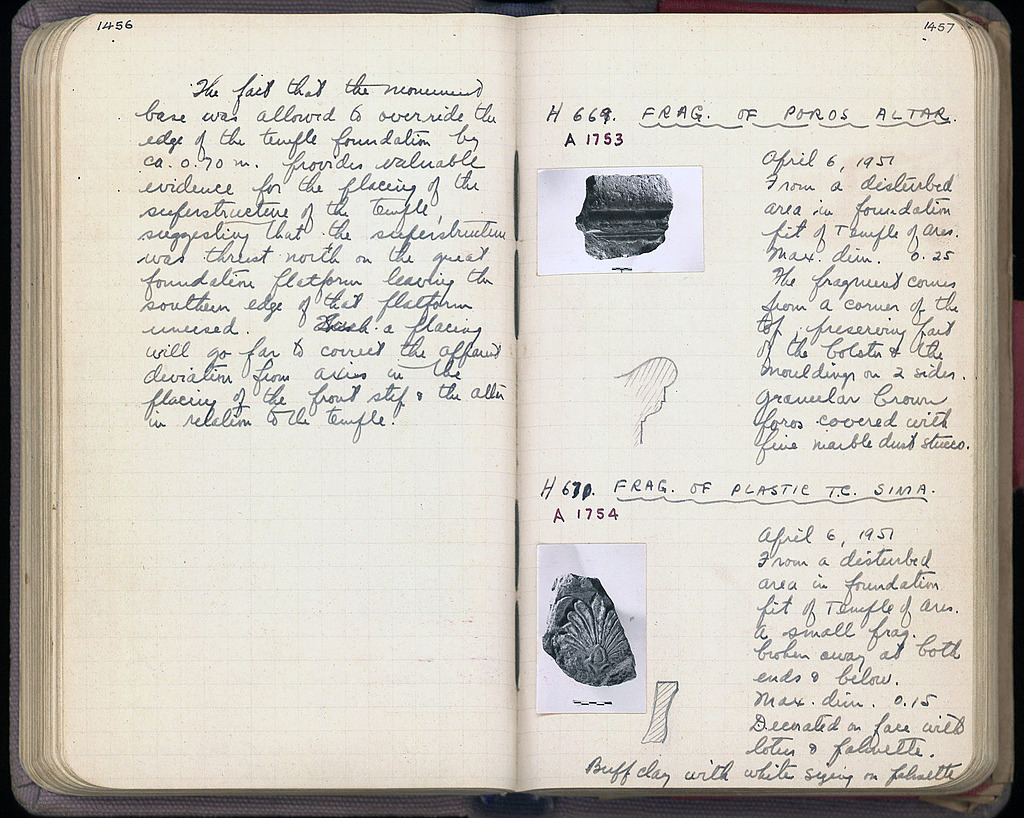 1456
The fact that the monument
base was allowed to override the
edge of the temple foundation by
ca. 0.70 m. provides valuable
evidence for the placing of the
superstructure of the temple,
suggesting that the superstructure
was thrust north on the great
foundation platform leaving the
southern edge of that platform
unused. Such a placing
will go far to correct the apparent
deviation from axis in the
placing of the front step & the altar
in relation to the temple.
1457
H 669. FRAG. OF POROS ALTAR.
A 1753
April 6, 1951
From a disturbed
area in foundation
pit of Temple of Ares.
Max. dim. 0.25
The fragment comes
from a corner of the
top, preserving part
of the bolster & the
mouldings on 2 sides.
Granular brown
poros covered with
fine marble dust stucco.
H 670. FRAG. OF PLASTIC T.C. SIMA.
A 1754
April 6, 1951
From a disturbed
area in foundation
pit of Temple of Ares.
A small frag.
broken away at both
ends & below.
Max. dim. 0.15
Decorated on face with
lotus & palmette.
Buff clay with white sizing on palmette